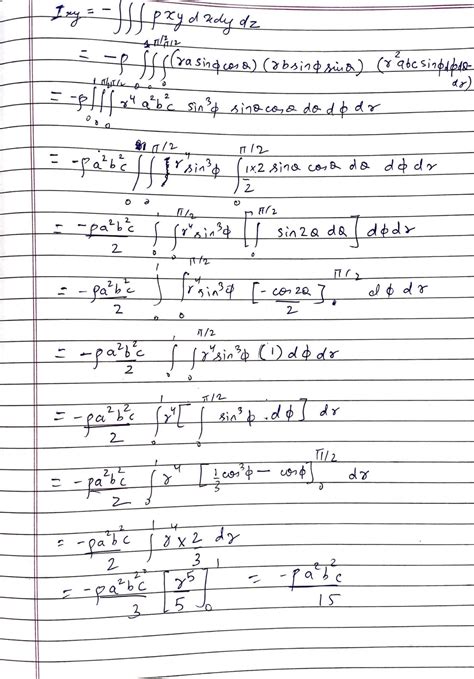 Ixy = - ∭ ρxy dxdydz
= -ρ ∫₀¹ ∫₀^{π/2} ∫₀^{π/2} (ra sinφ cosθ) (rb sinφ sinθ) (r² abc sinφ dφ dθ dr)
= -ρ ∫₀¹ ∫₀^{π/2} ∫₀^{π/2} r⁴ a²b²c sin³φ sinθ cosθ dθ dφ dr
= -ρa²b²c ∫₀¹ ∫₀^{π/2} r⁴ sin³φ ∫₀^{π/2} 1/2 × 2 sinθ cosθ dθ dφ dr
= -ρa²b²c/2 ∫₀¹ ∫₀^{π/2} r⁴ sin³φ [∫₀^{π/2} sin2θ dθ] dφ dr
= -ρa²b²c/2 ∫₀¹ ∫₀^{π/2} r⁴ sin³φ [-cos2θ/2]₀^{π/2} dφ dr
= -ρa²b²c/2 ∫₀¹ ∫₀^{π/2} r⁴ sin³φ (1) dφ dr
= -ρa²b²c/2 ∫₀¹ r⁴ [∫₀^{π/2} sin³φ . dφ] dr
= -ρa²b²c/2 ∫₀¹ r⁴ [1/3 cos³φ - cosφ]₀^{π/2} dr
= -ρa²b²c/2 ∫₀¹ r⁴ × 2/3 dr
= -ρa²b²c/3 [r⁵/5]₀¹ = -ρa²b²c/15